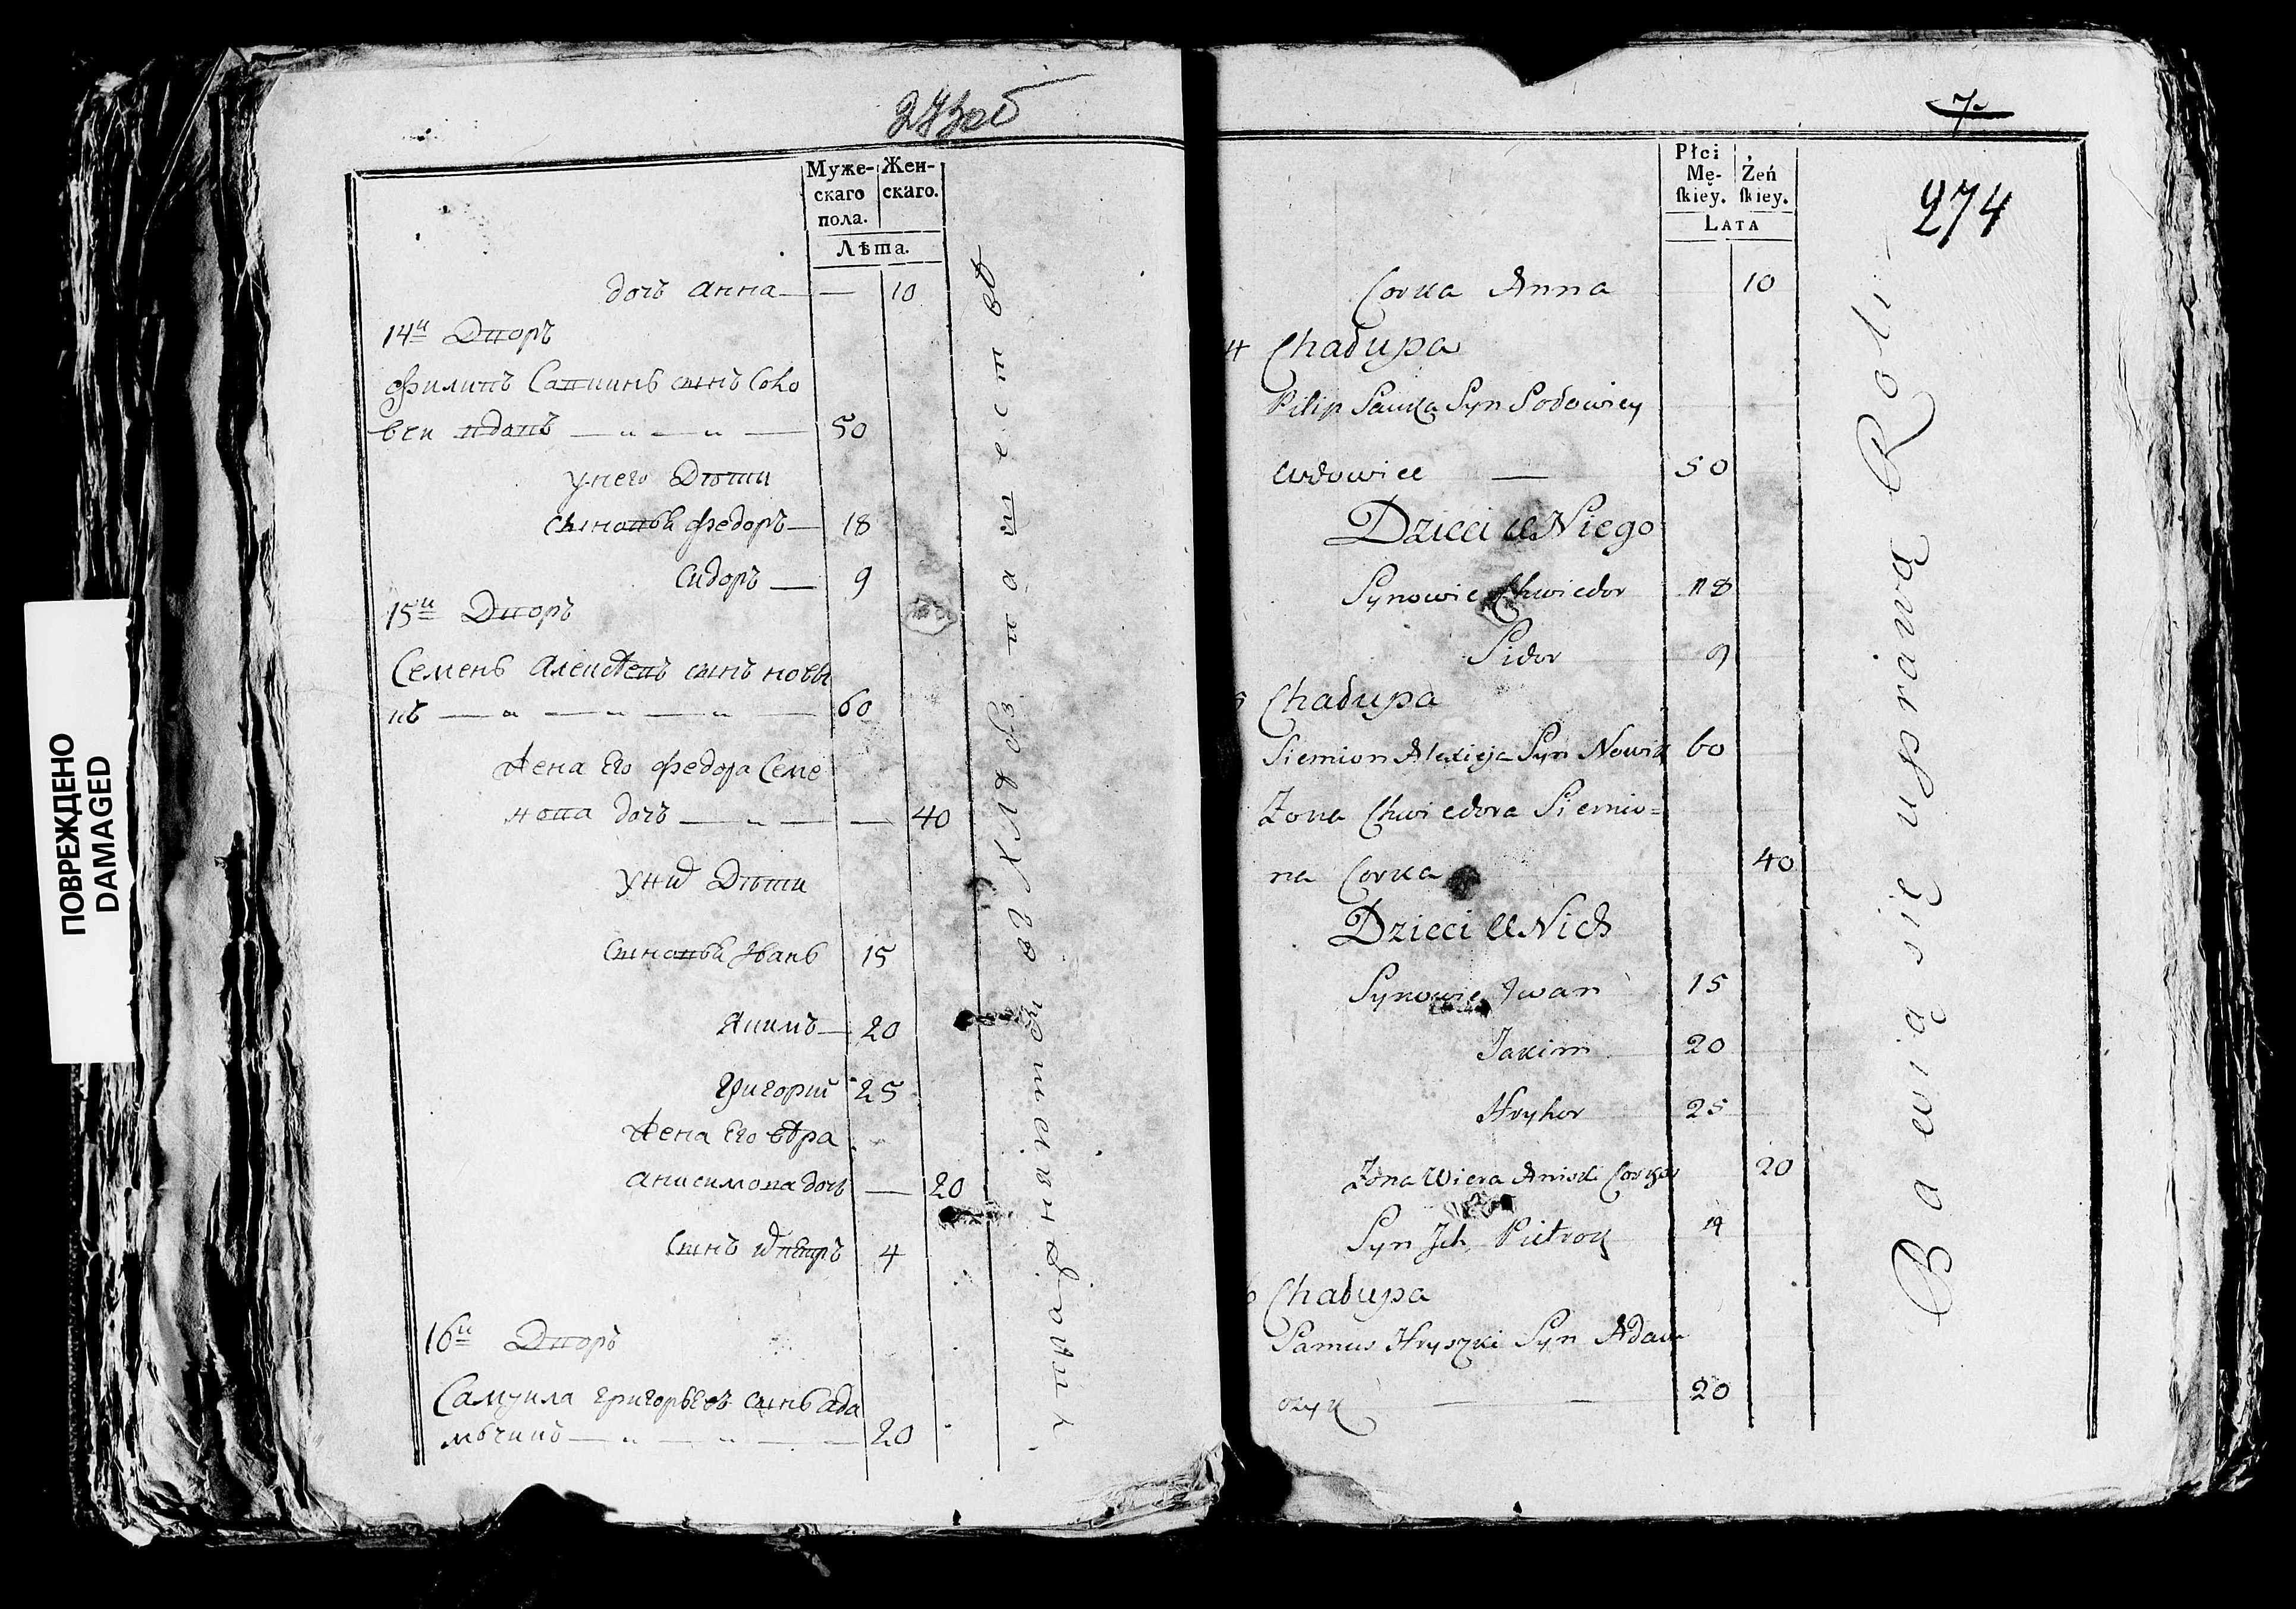 ПОВРЕЖДЕНО
DAMAGED
273об
Муже-
скаго
пола.
Жен-
скаго.
Лѣта.
дочь Анна — — 10
14й Дворъ
Филипъ Савинъ сынъ Соко
вецъ вдовъ — „ — „ — 50
у него Дѣти
сыновья Федоръ — 18
Сидоръ — 9
15й Дворъ
Семенъ Алексѣевъ сынъ новы
къ — „ — „ — „ — 60
жена Его Федора Семе
нова дочь — „ — — 40
у них Дѣти
сыновья Иванъ 15
Якимъ — 20
Григорий 25
жена Его вѣра
Анисимова дочь — 20
Сынъ Петръ 4
16й Дворъ
Самуила григорьевъ сынъ Ада
мъчикъ — „ — „ — 20
7
274
Płci
Mę-
skiey.
Żeń
skiey.
LATA
Corka Anna 10
Chałupa
Pilip Sawka Syn Sodowiey
wdowiec — 50
Dzieci u Niego
Synowie Chwiedor 18
Sidor 9
Chałupa
Siemion Alexieja Syn Nowik 60
Zona Chwiedora Siemio=
na Corka 40
Dzieci u Nich
Synowie Jwan 15
Jakim 20
Hryhor 25
Zona Wiera Anisk. Corka 20
Syn Jch Pietrok 4
Chałupa
Samus Hryszki Syn Adam
czyk — — 20
Bawią się uprawą Roli